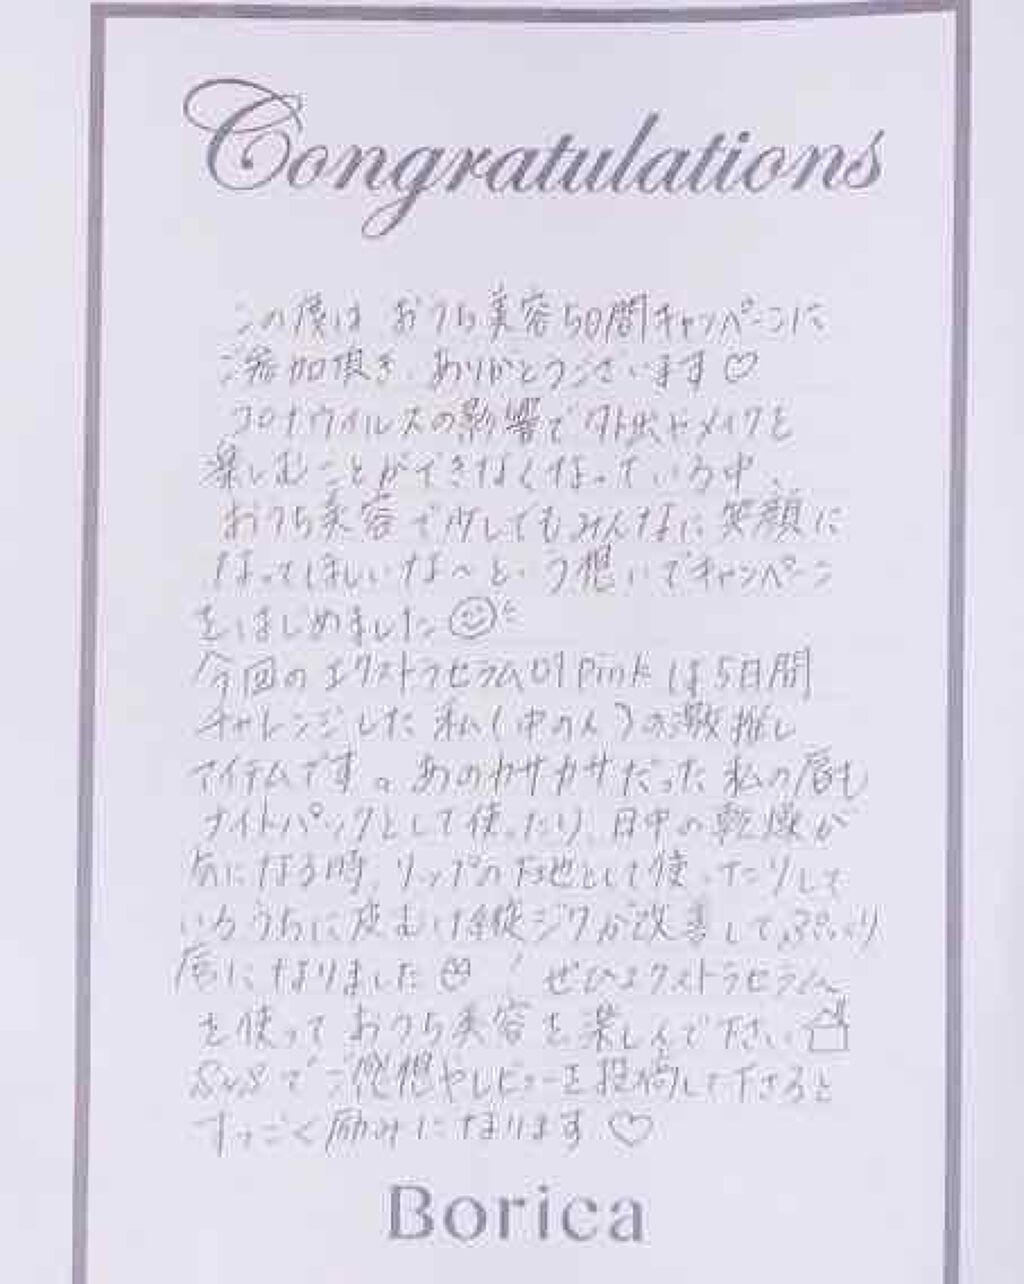 Congratulations
この度は おうち美容5日間キャンペーンに
ご参加頂き、ありがとうございます♡
コロナウイルスの影響で外出やメイクを
楽しむことができなくなっている中、
おうち美容で少しでもみんなに笑顔に
なってほしいな〜という想いでキャンペーン
をはじめました
今回のエクストラセラム01 Pinkは5日間
チャレンジした私(中の人)の激推し
アイテムです。あのカサカサだった私の唇も
ナイトパックとして使ったり、日中の乾燥が
気になる時、リップの下地として使ったりして
いるうちに皮むけ縦ジワが改善してぷっくり
唇になりました ! ぜひエクストラセラム
を使っておうち美容を楽しんで下さい
SNSでご感想やレビューを投稿して下さると
すっごく励みになります♡
Borica